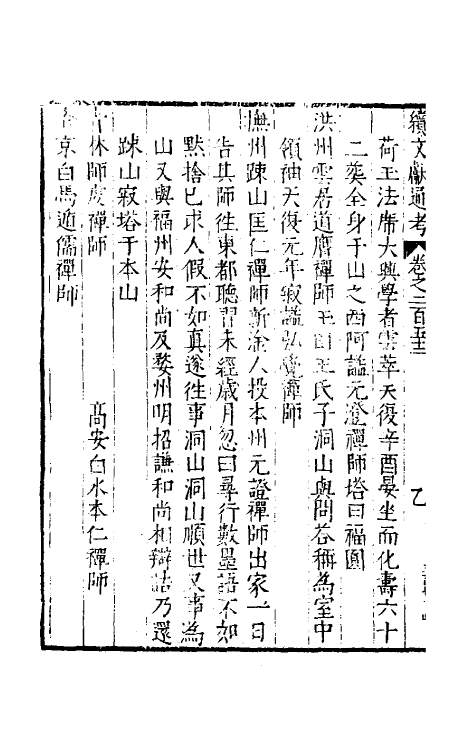 續文獻通考 卷之二百
荷玉法席大興學者雲萃天復辛酉晏坐而化壽六十
二葬全身于山之西阿謚元澄禪師塔曰福圓
洪州雲居道膺禪師玉田王氏子洞山與問荅稱為室中
領袖天復元年寂謚弘覺禪師
撫州踈山匡仁禪師新淦人投本州元證禪師出家一日
告其師往東都聽習未經歲月忽曰尋行數墨語不如
黙捨已求人假不如真遂往事洞山洞山順世又事為
山又與福州安和尚及婺州明招謙和尚相辯詰乃還
踈山寂塔于本山
休師虔禪師 高安白水本仁禪師
京白馬遁儒禪師